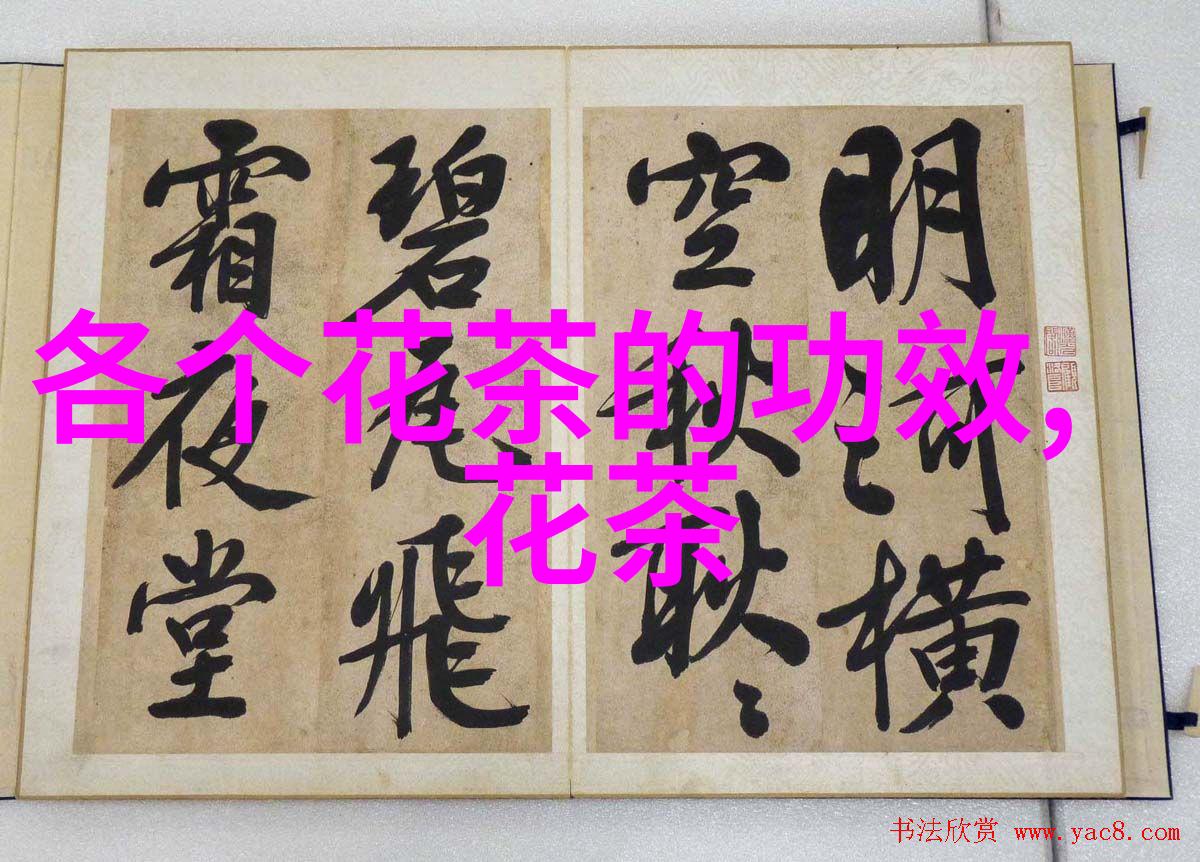 明河横
空耿耿
碧瓦飛
霜夜堂
各个花茶的功效,
花茶
书法欣赏 www.yac8.com